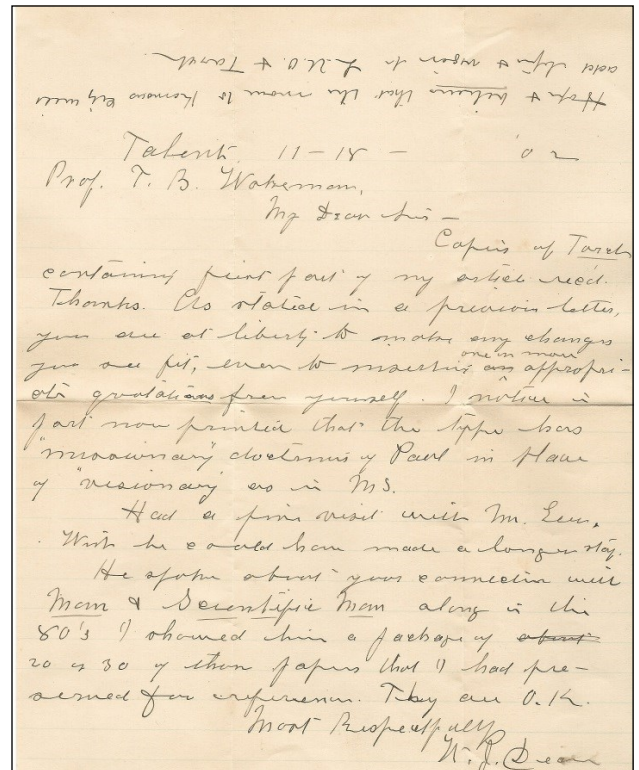 Hope & believe that the move to Kansas City will
add life & vigor to L.U.O. & Torch.
Talent. 11 – 18 – '02
Prof. T. B. Wakeman,
My Dear Sir –
Copies of Torch
containing first part of my article rec'd.
Thanks. As stated in a previous letter,
you are at liberty to make any changes
you see fit, even to inserting one or more appropri-
ate quotations from yourself. I notice in
part now printed that the type has
"missionary" doctrines of Paul in place
of "visionary" as in MS.
Had a fine visit with Mr.
Wish he could have made a longer stay.
He spoke about your connection with
Man & Scientific Man along in the
80's & I showed him a package of about
20 or 30 of those papers that I had pre-
served for reference. They are O.K.
Most Respectfully
W. J. Dean